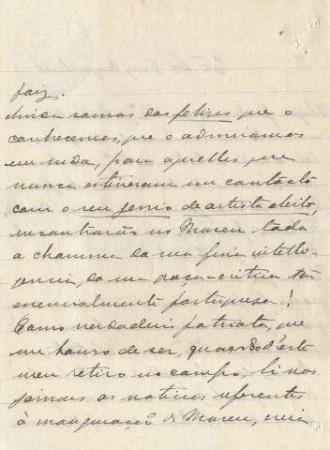 faiz.
ainda vamos dos felizes que o
conhecemos, que o admiramos
em vida, para aquelles que
nunca estiveram em contacto
com o seu genio de artista eleito,
encontrarão no Museu toda
a chamma da sua fina intelli-
gencia, da sua graça critica tão
essencialmente portuguesa!
Como verdadeiro patriota, que
me honro de ser, quando d'este
meu retiro no campo, li nos
jornais as noticias referentes
à inauguração do Museu,